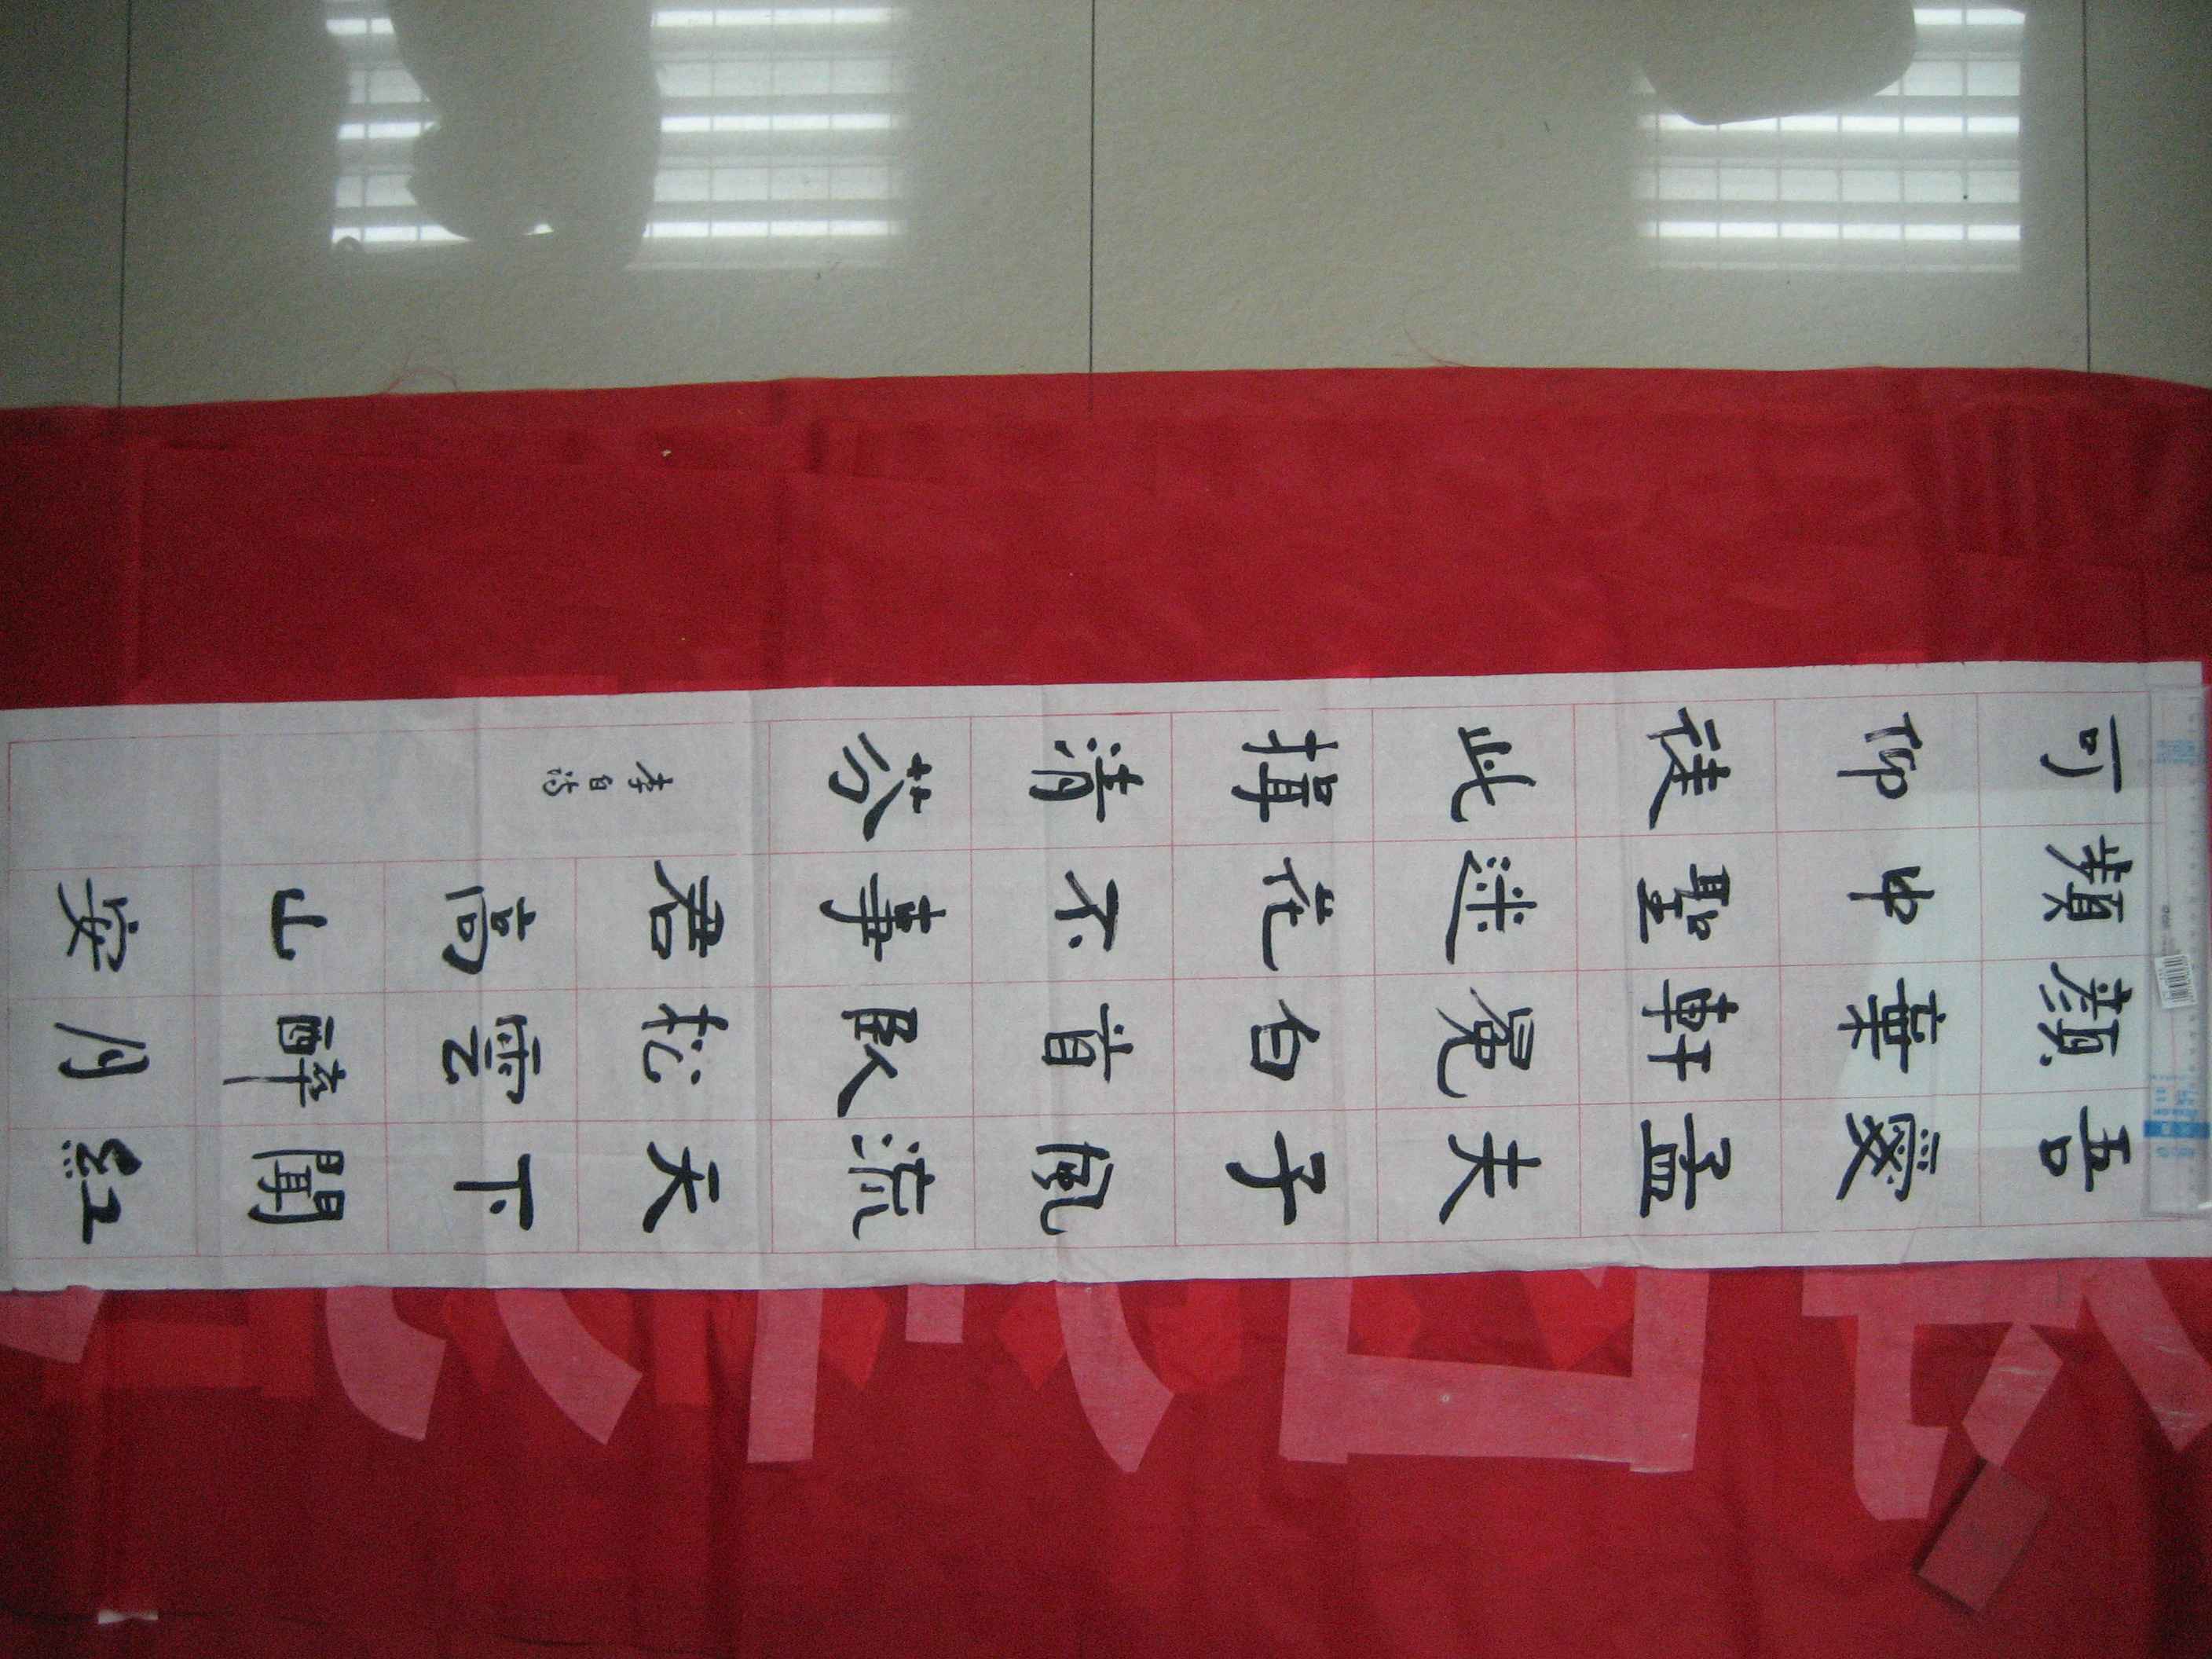 吾愛孟夫子風流天下聞紅
顏棄軒冕白首臥松雲醉月
頻中聖迷花不事君高山安
可仰徒此揖清芬
李白詩